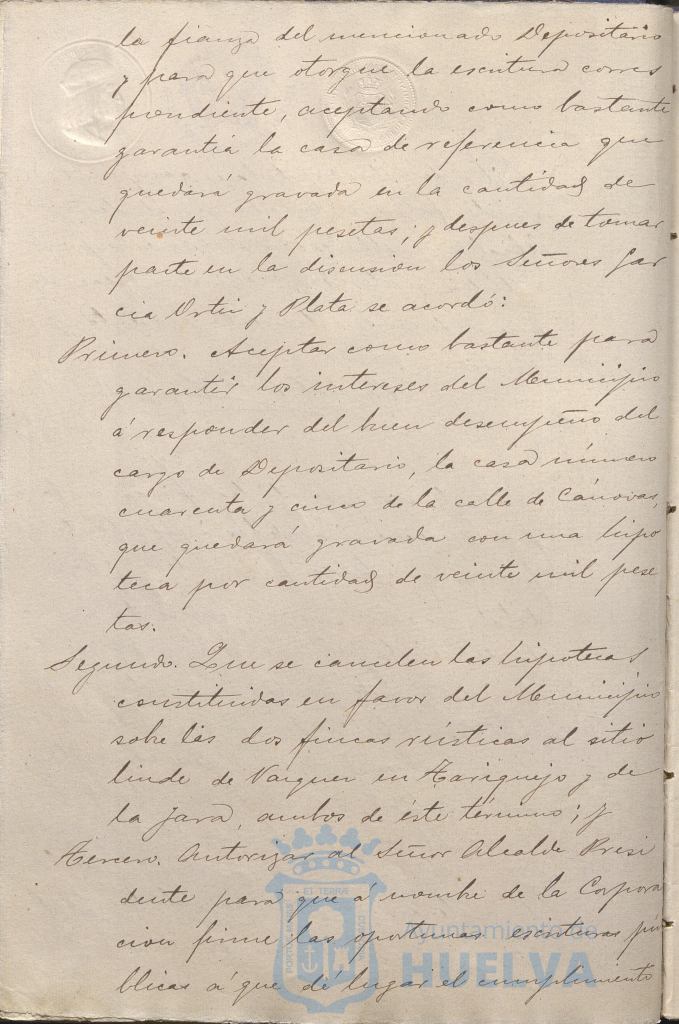 la fianza del mencionado Depositario
y para que otorgue la escritura corres
pondiente, aceptando como bastante
garantía la casa de referencia que
quedará gravada en la cantidad de
veinte mil pesetas; y despues de tomar
parte en la discusion los Señores Gar
cia Ortiz y Plata se acordó:
Primero. Aceptar como bastante para
garantir los intereses del Municipio
á responder del buen desempeño del
cargo de Depositario, la casa número
cuarenta y cinco de la calle de Cánovas,
que quedará gravada con una hipo
teca por cantidad de veinte mil pese
tas.
Segundo. Que se cancelen las hipotecas
constituidas en favor del Municipio
sobre las dos fincas rústicas al sitio
linde de Vazquez en Tariquejo y de
la Jara, ambos de éste término; y
Tercero. Autorizar al Señor Alcalde Presi
dente para que á nombre de la Corpora
cion firme las oportunas escrituras pú
blicas á que dé lugar el cumplimiento
Ayuntamiento de
HUELVA